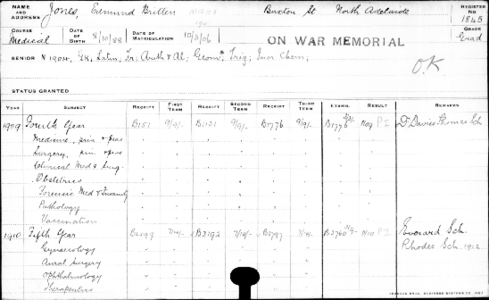 NAME AND ADDRESS Jones, Edmund Britten Buxton St North Adelaide REGISTER NO 1545
COURSE Medical DATE OF BIRTH 8/10/88 DATE OF MATRICULATION 10/3/06 ON WAR MEMORIAL GRADE Grad
SENIOR N 1904, Gk, Latin, Fr, Arith & Al; Geom & Trig; Inor Chem; O.K
STATUS GRANTED
YEAR SUBJECT RECEIPT FIRST TERM RECEIPT SECOND TERM RECEIPT THIRD TERM EXAMS. RESULT REMARKS
1909 Fourth Year B151 9/9/- B1776 9/9/- B1776 Nov Dr Davies Thomas Sch
Medicine, prin & prac
Surgery, prin & prac
Clinical Med & Surg.
Obstetrics
Forensic Med & Insanity
Pathology
Vaccination
1910 Fifth Year Everard Sch.
Gynaecology Rhodes Sch. 1912
Aural Surgery
Ophthalmology
Therapeutics